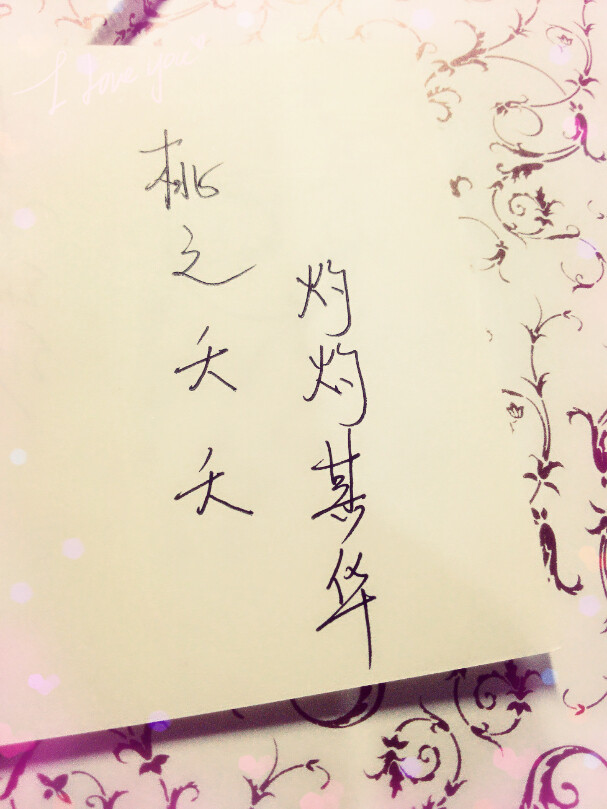 I love you
桃之夭夭
灼灼其华